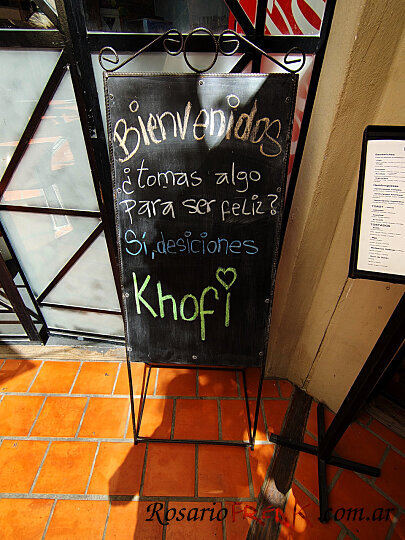 Bienvenidos
¿tomas algo
para ser feliz?
Sí, desiciones
Khofi
RosarioFREAK.com.ar